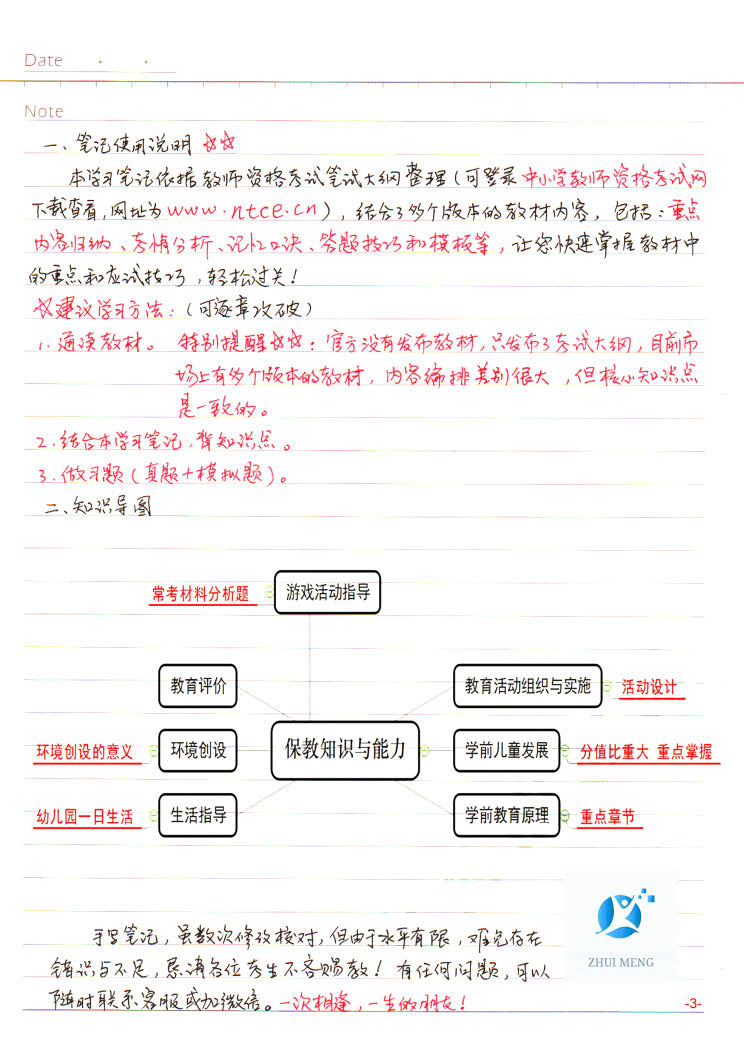 Date
Note
一、笔记使用说明 ☆☆
本学习笔记依据教师资格考试笔试大纲整理(可登录中小学教师资格考试网
下载查看,网址为www.ntce.cn),结合了多个版本的教材内容,包括:重点
内容归纳、考情分析、记忆口诀、答题技巧和模板等,让您快速掌握教材中
的重点和应试技巧,轻松过关!
☆建议学习方法:(可逐章攻破)
1.通读教材。 特别提醒☆☆:官方没有发布教材,只发布了考试大纲,目前市
场上有多个版本的教材,内容编排差别很大,但核心知识点
是一致的。
2.结合本学习笔记,背知识点。
3.做习题(真题+模拟题)。
二、知识导图
常考材料分析题 游戏活动指导
教育评价 教育活动组织与实施 活动设计
环境创设的意义 环境创设 保教知识与能力 学前儿童发展 分值比重大 重点掌握
幼儿园一日生活 生活指导 学前教育原理 重点章节
手写笔记,虽数次修改校对,但由于水平有限,难免存在
错误与不足,恳请各位考生不吝赐教!有任何问题,可以
随时联系客服或加微信。一次相逢,一生的朋友!
ZHUI MENG
-3-